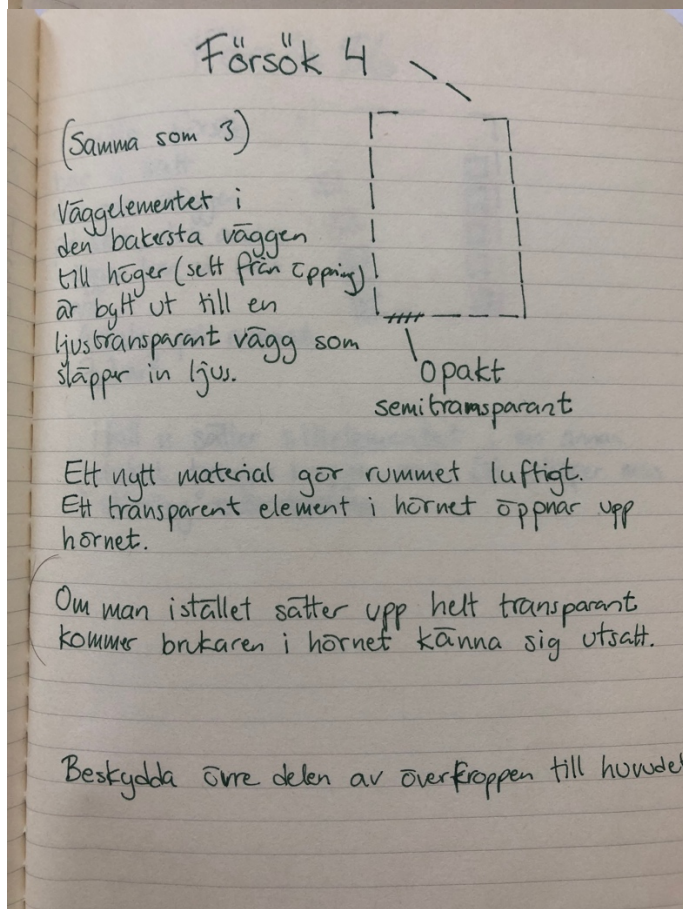 Försök 4
(Samma som 3)
Väggelementet i
den bakersta väggen
till höger (sett från öppning)
är bytt ut till en
ljustransparant vägg som
släpper in ljus.
Opakt
semitransparant
Ett nytt material gör rummet luftigt.
Ett transparent element i hörnet öppnar upp
hörnet.
Om man istället sätter upp helt transparant
kommer brukaren i hörnet känna sig utsatt.
Beskydda övre delen av överkroppen till huvudet